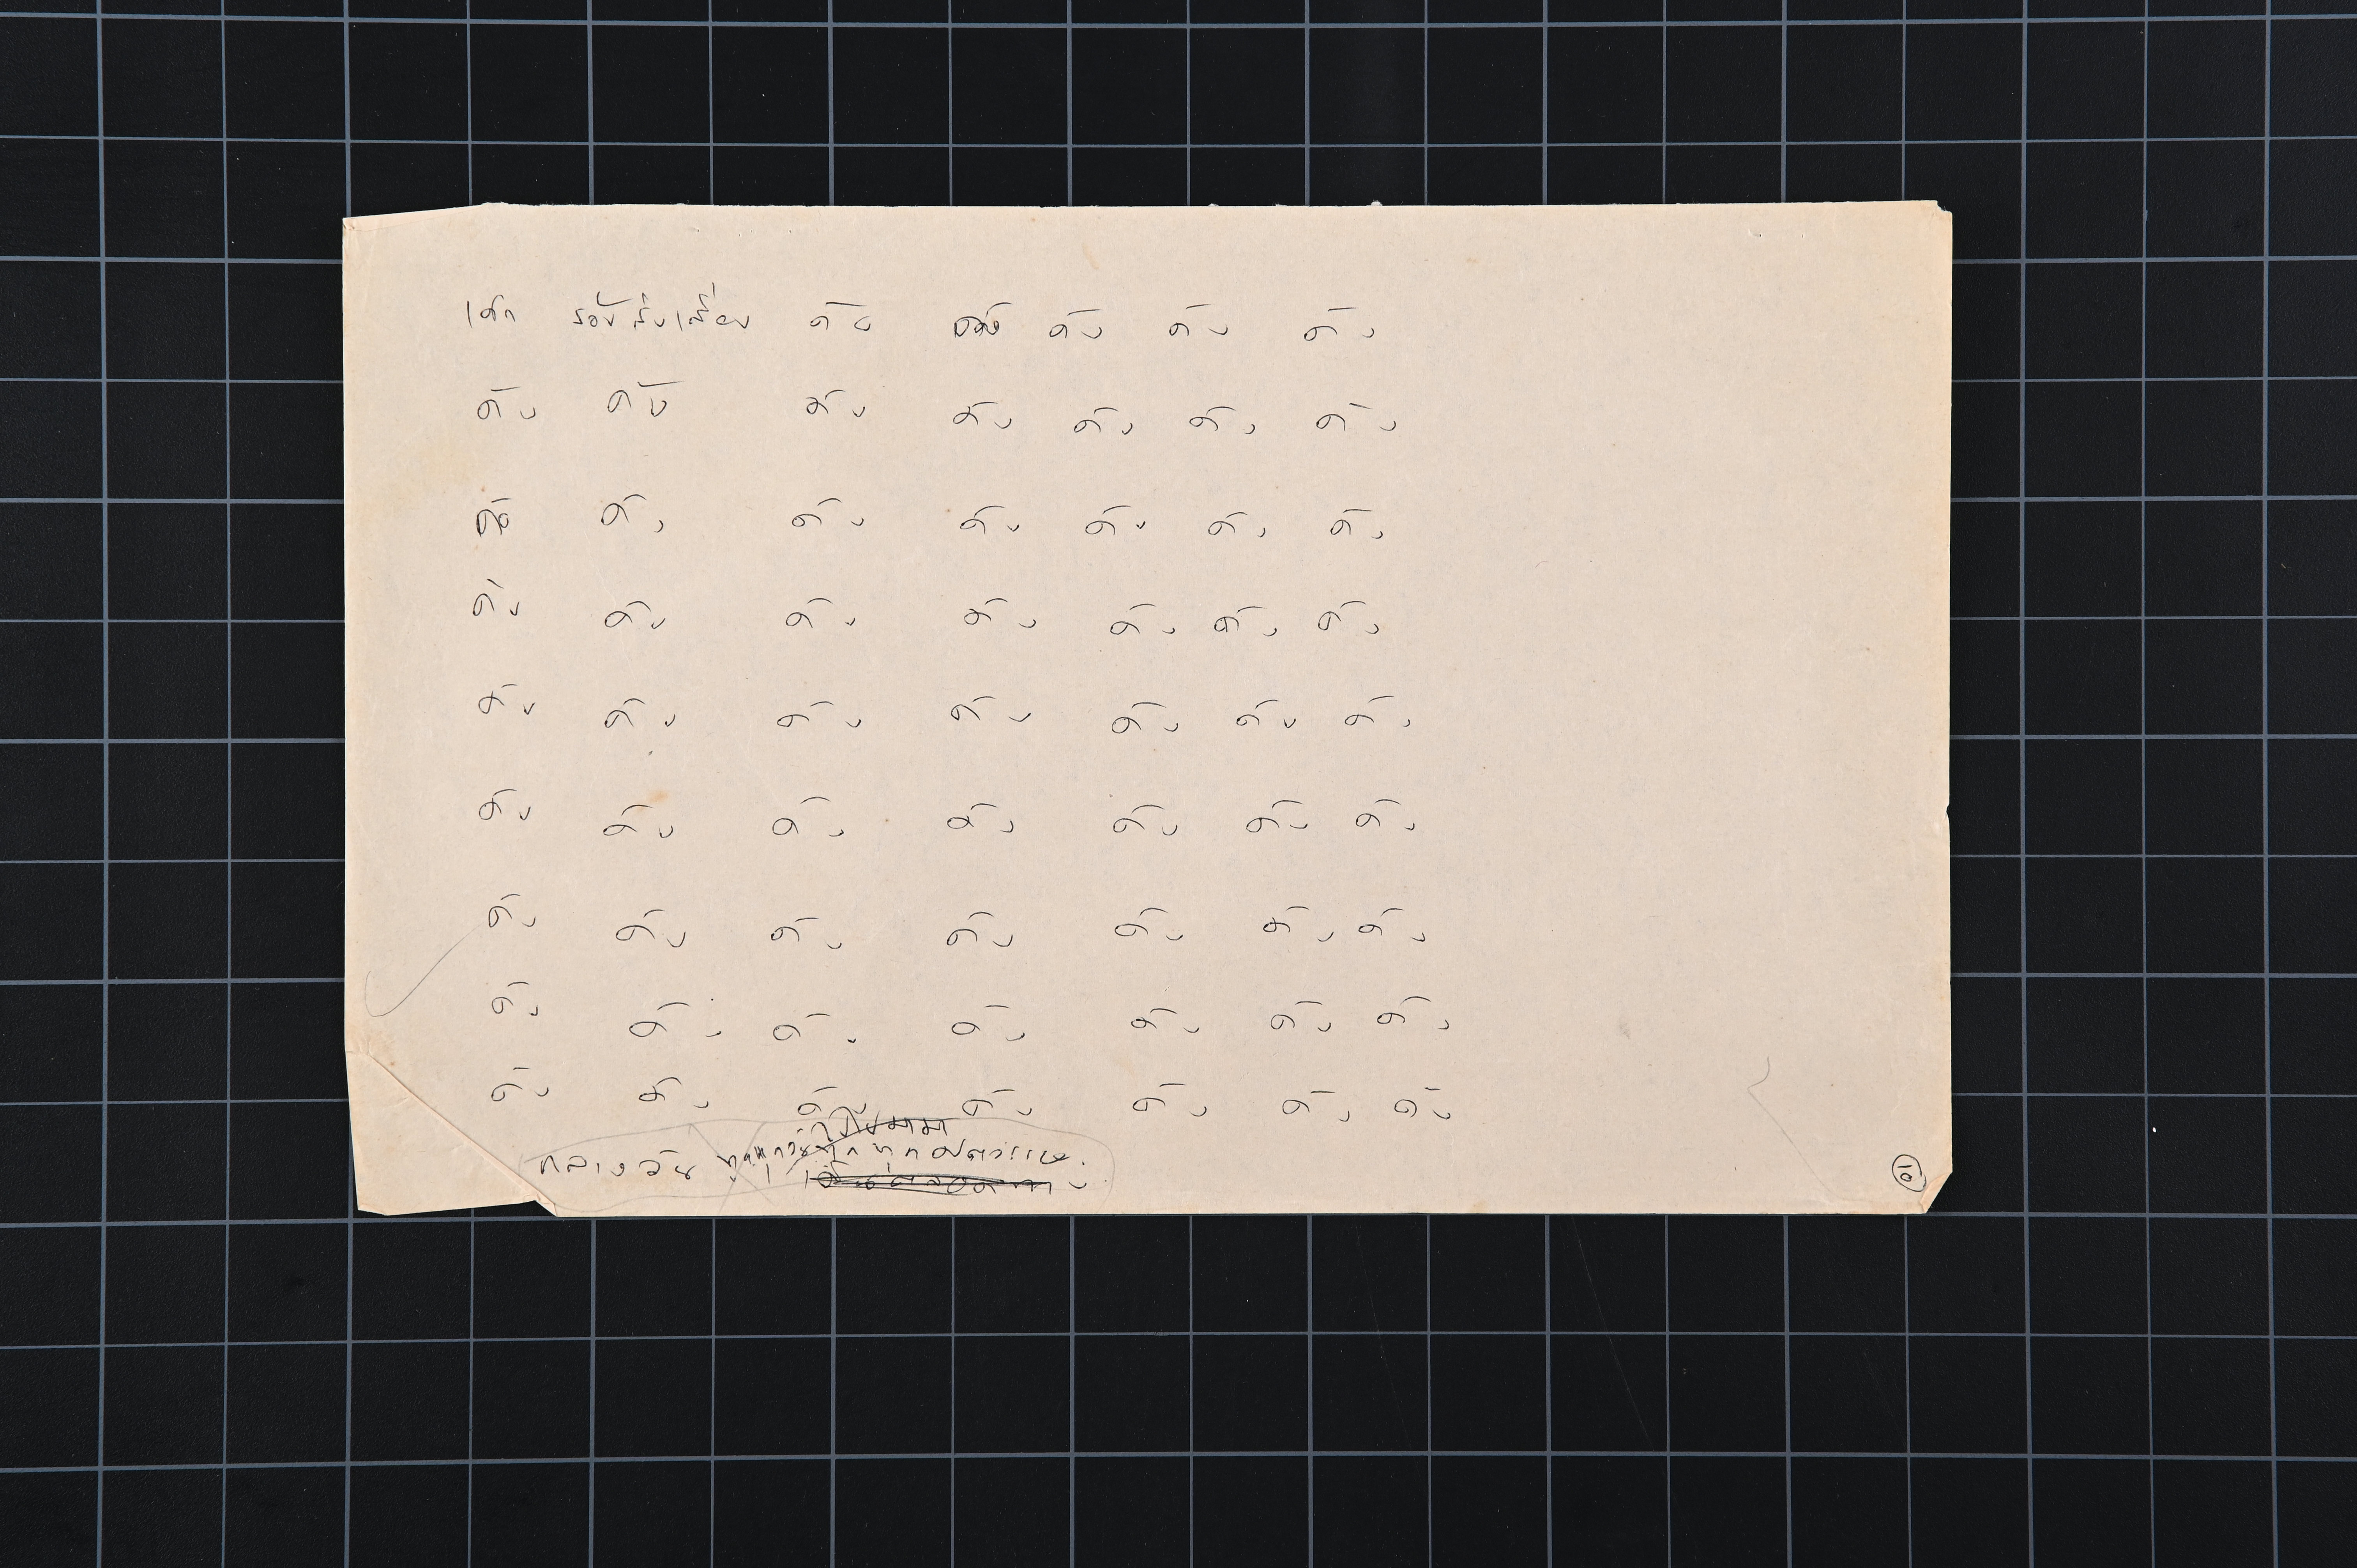 เด็ก ร้องส่งเสียง ดัง ดัง ดัง ดัง ดัง
ดัง ดัง ดัง ดัง ดัง ดัง ดัง
ดัง ดัง ดัง ดัง ดัง ดัง ดัง
ดัง ดัง ดัง ดัง ดัง ดัง ดัง
ดัง ดัง ดัง ดัง ดัง ดัง ดัง
ดัง ดัง ดัง ดัง ดัง ดัง ดัง
ดัง ดัง ดัง ดัง ดัง ดัง ดัง
ดัง ดัง ดัง ดัง ดัง ดัง ดัง
ดัง ดัง ดัง ดัง ดัง ดัง ดัง
กลางวัน ทุกศตวรรษ
10